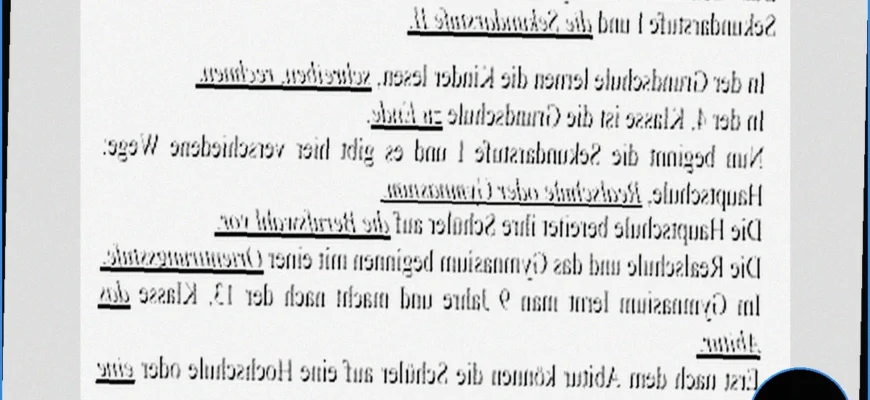 Sekundarstufe I und die Sekundarstufe II.
In der Grundschule lernen die Kinder lesen, schreiben, rechnen.
In der 4. Klasse ist die Grundschule zu Ende.
Nun beginnt die Sekundarstufe I und es gibt hier verschiedene Wege:
Hauptschule, Realschule oder Gymnasium.
Die Hauptschule bereitet ihre Schüler auf die Berufswahl vor.
Die Realschule und das Gymnasium beginnen mit einer Orientirungsstufe.
Im Gymnasium lernt man 9 Jahre und macht nach der 13. Klasse das
Abitur.
Erst nach dem Abitur können die Schüler auf eine Hochschule oder eine